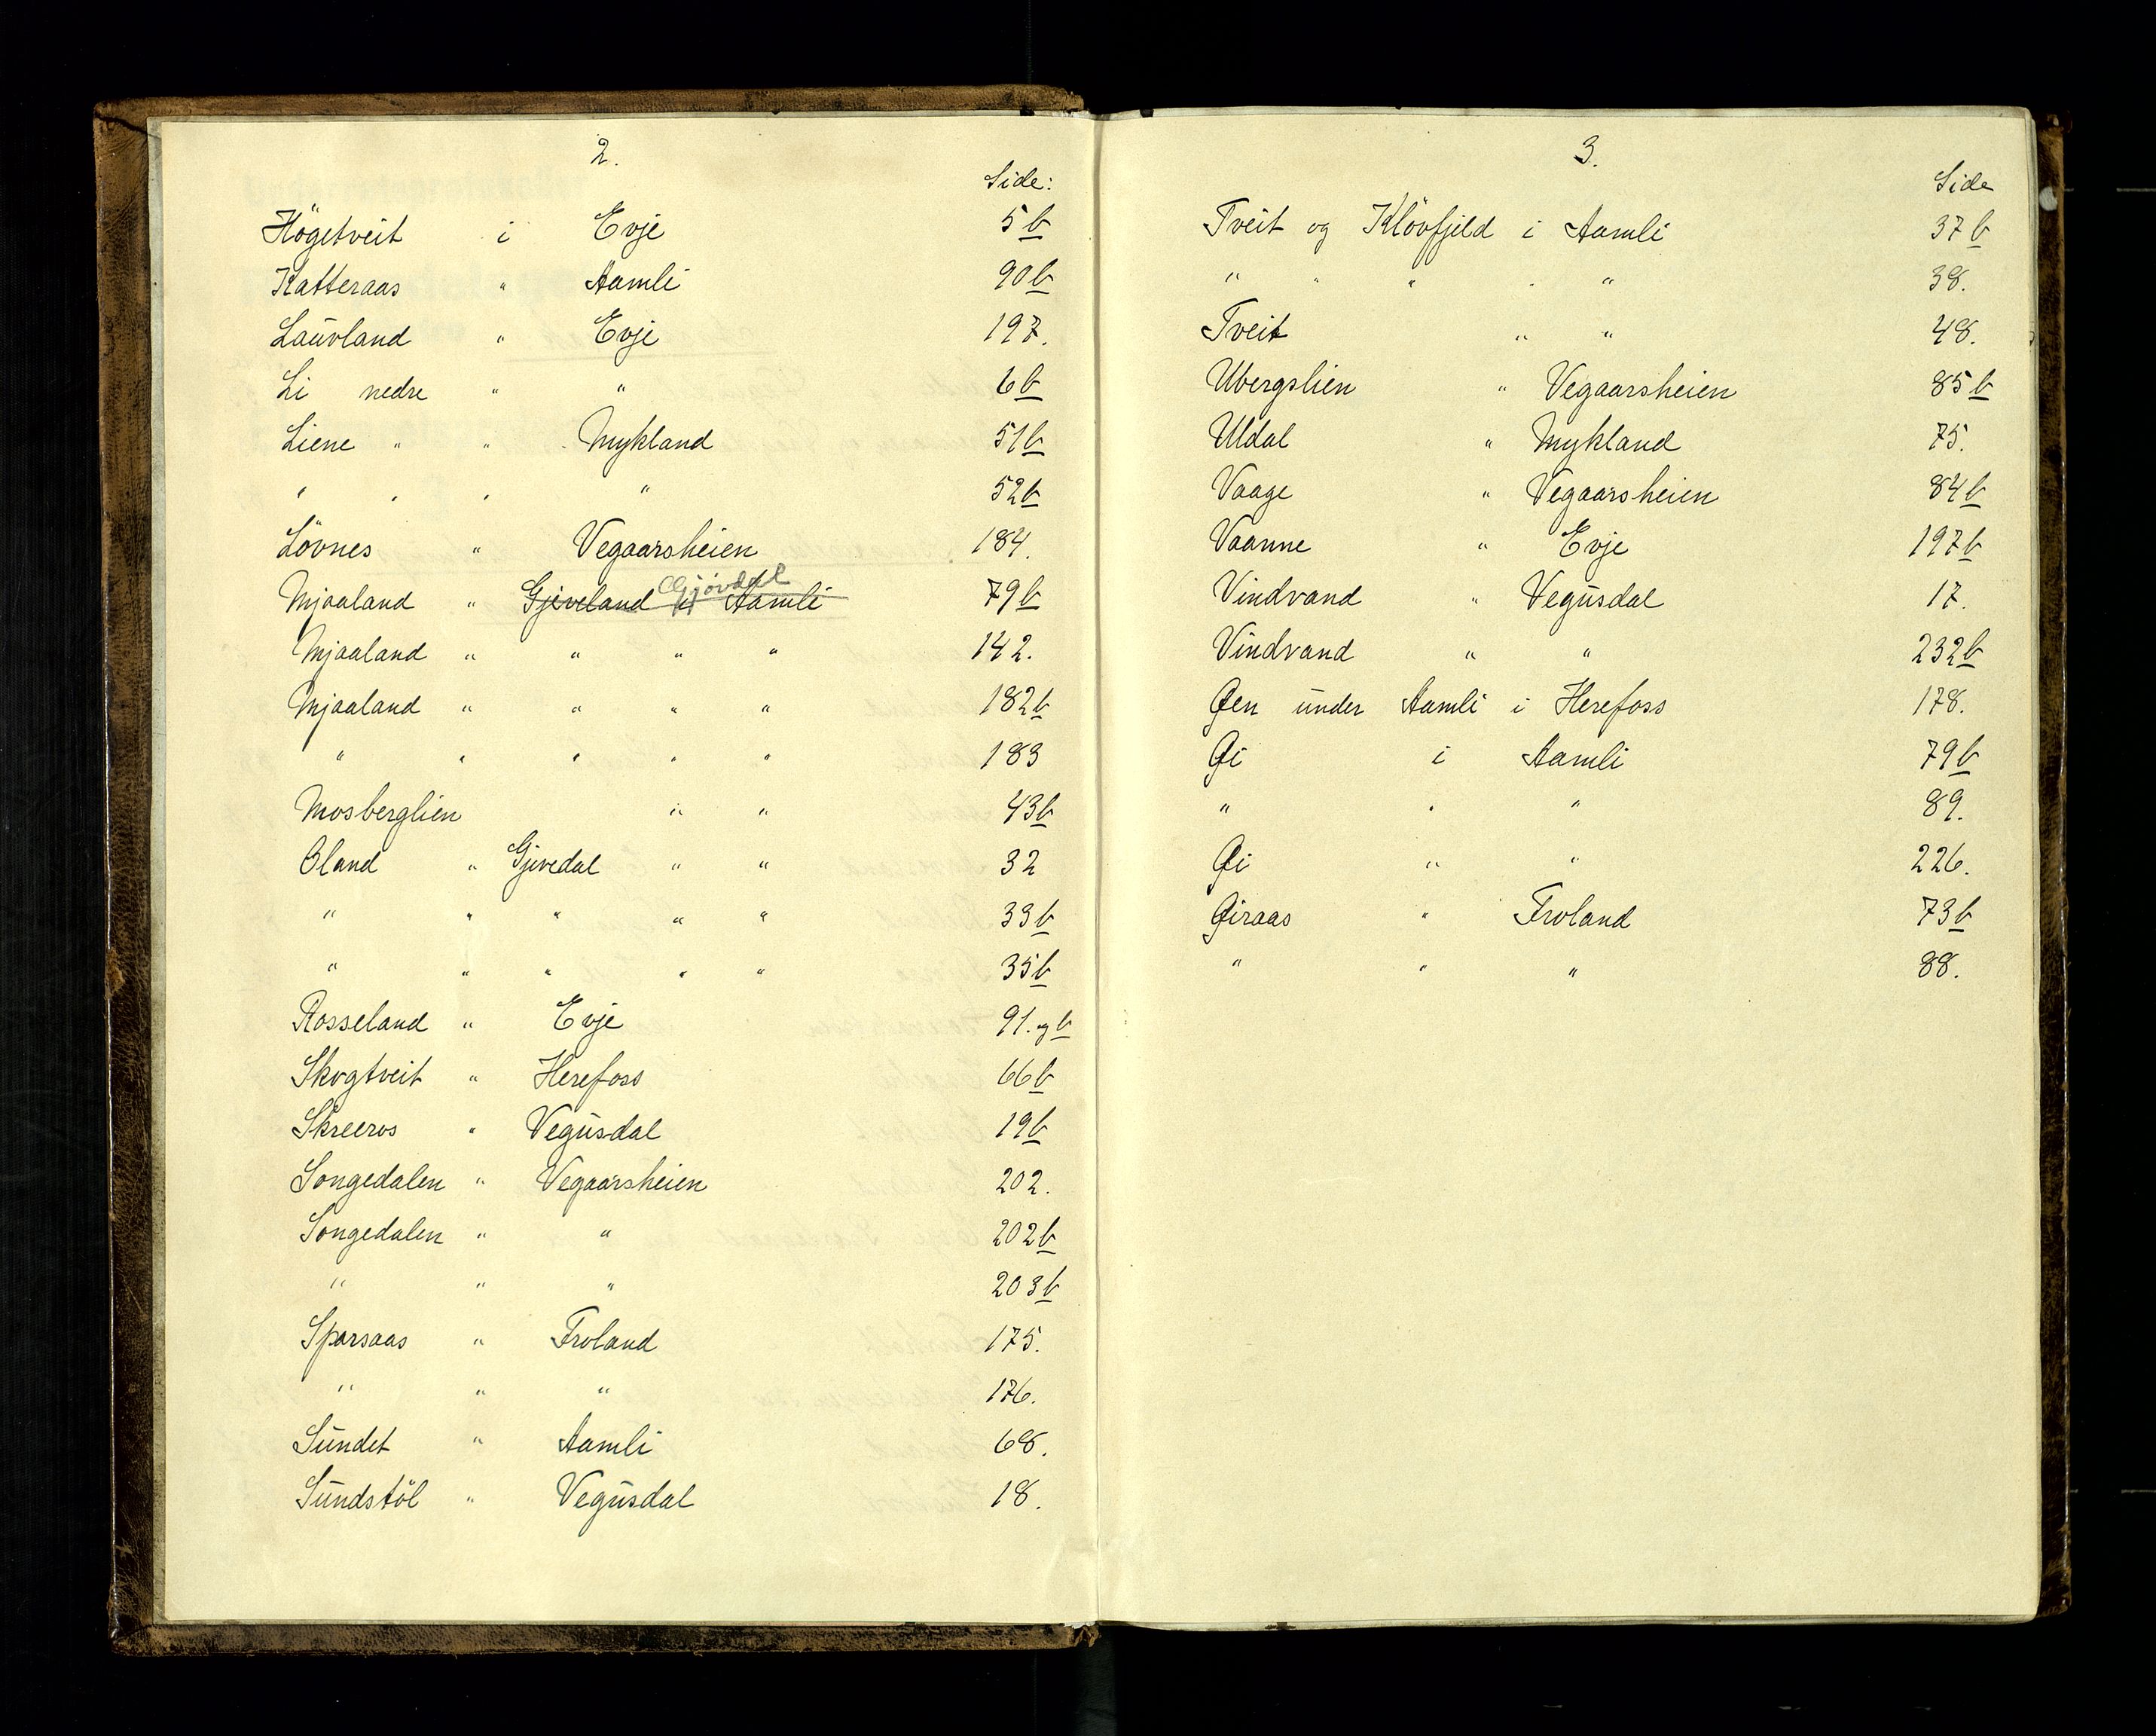 2.
Side:
Högetveit i Evje 5b
Katteraas " Aamli 90b
Laŭvland " Evje 197.
Li nedre " " 6b
Liene " " Mykland 51b
" " " " 52b
Lövnes " Vegaarsheien 184.
Gjövdal
Mjaaland " Gjeveland i Aamli 79b
Mjaaland " " " " 142.
Mjaaland " " " " 182b
" " " " " 183
Mosberglien " " 43b
Oland " Gjevedal " " 32
" " " " " 33b
" " " " " 35b
Rosseland " Evje 91. og b
Skogtveit " Herefoss 66b
Skreeros " Vegŭsdal 19b
Songedalen " Vegaarsheien 202.
Songedalen " " 202b
" " " 203b
Sparsaas " Froland 175.
" " " 176.
Sŭndet " Aamli 68.
Sŭndstöl " Vegŭsdal 18.
3.
Side
Tveit og Klövfjeld i Aamli 37b
" " " " " 38.
Tveit " " 48.
Ubergslien " Vegaarsheien 85b
Uldal " Mykland 75.
Vaage " Vegaarsheien 84b
Vaanne " Evje 197b
Vindvand " Vegŭsdal 17.
Vindvand " " 232b
Øen ŭnder Aamli i Herefoss 178.
Øi i Aamli 79b
" " " 89.
Øi " " 226.
Øiraas " Froland 73b
" " " 88.